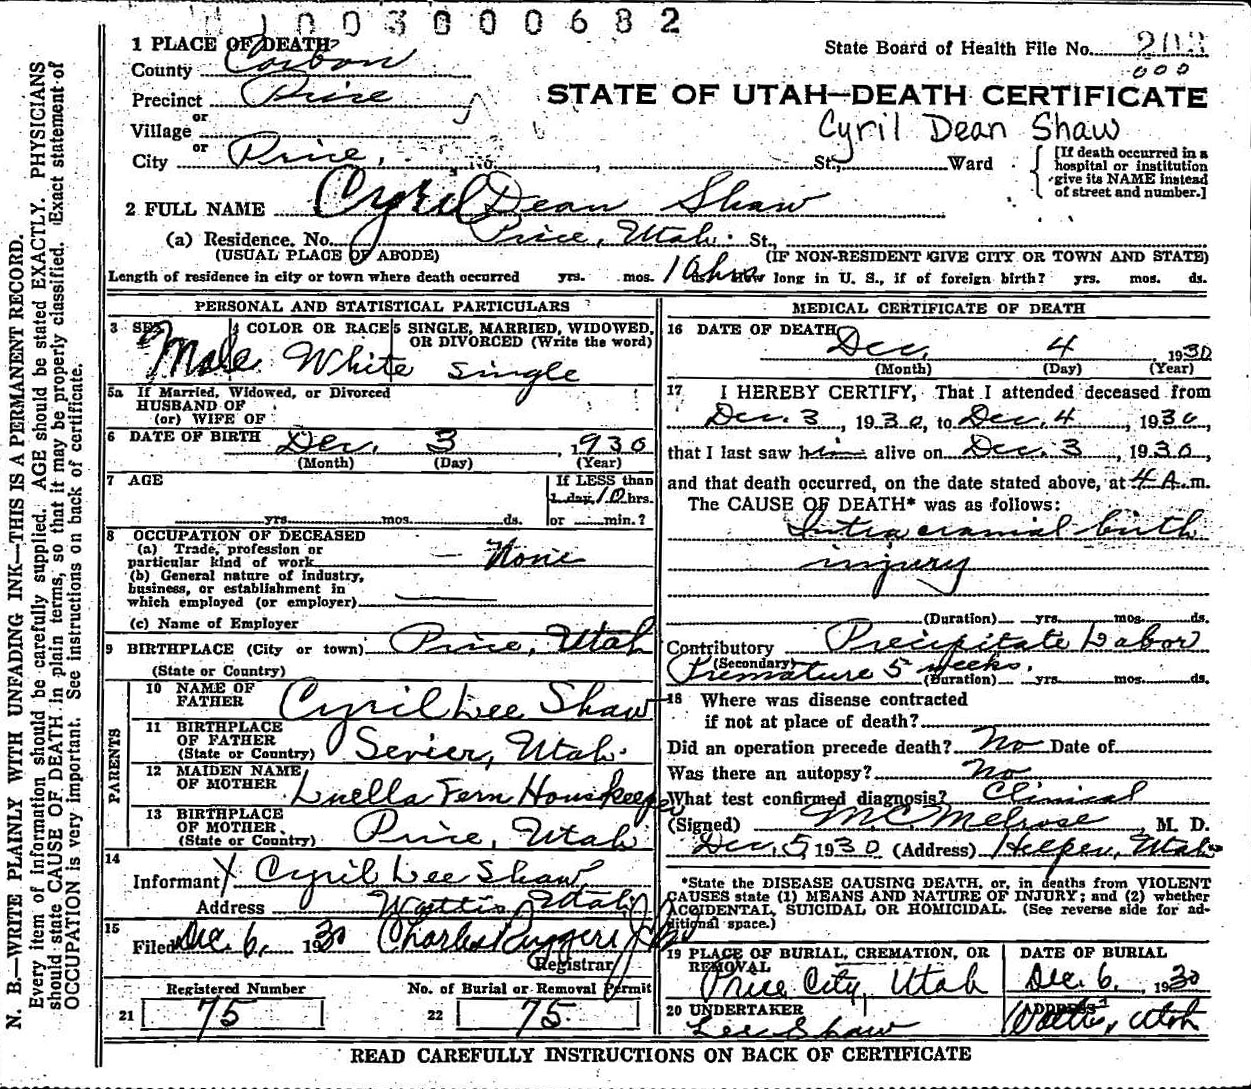 1003000682
1 PLACE OF DEATH
State Board of Health File No. 203
000
County Carbon
Precinct Price
STATE OF UTAH—DEATH CERTIFICATE
or
Village
Cyril Dean Shaw
or
City Price, No. , St., Ward
[If death occurred in a
hospital or institution
give its NAME instead
of street and number.]
2 FULL NAME Cyril Dean Shaw
(a) Residence. No. Price, Utah. St.,
(USUAL PLACE OF ABODE) (IF NON-RESIDENT GIVE CITY OR TOWN AND STATE)
Length of residence in city or town where death occurred yrs. mos. 10 hrs How long in U. S., if of foreign birth? yrs. mos. ds.
PERSONAL AND STATISTICAL PARTICULARS
3 SEX 4 COLOR OR RACE 5 SINGLE, MARRIED, WIDOWED,
OR DIVORCED (Write the word)
Male White Single
5a If Married, Widowed, or Divorced
HUSBAND OF
(or) WIFE OF
6 DATE OF BIRTH Dec. 3, 1930
(Month) (Day) (Year)
7 AGE If LESS than
1 day, 10 hrs.
yrs. mos. ds. or min.?
8 OCCUPATION OF DECEASED
(a) Trade, profession or
particular kind of work — None
(b) General nature of industry,
business, or establishment in
which employed (or employer)
(c) Name of Employer
9 BIRTHPLACE (City or town) Price, Utah
(State or Country)
PARENTS
10 NAME OF
FATHER Cyril Lee Shaw
11 BIRTHPLACE
OF FATHER
(State or Country) Sevier, Utah.
12 MAIDEN NAME
OF MOTHER Luella Fern Houskeeper
13 BIRTHPLACE
OF MOTHER
(State or Country) Price, Utah
14
Informant X Cyril Lee Shaw
Address Wattis, Utah
15
Filed Dec. 6, 1930 Charles Ruggeri
Registrar
Registered Number No. of Burial or Removal Permit
21 75 22 75
MEDICAL CERTIFICATE OF DEATH
16 DATE OF DEATH
Dec. 4, 1930
(Month) (Day) (Year)
17 I HEREBY CERTIFY, That I attended deceased from
Dec. 3, 1930, to Dec. 4, 1930,
that I last saw him alive on Dec. 3, 1930,
and that death occurred, on the date stated above, at 4 A.m.
The CAUSE OF DEATH* was as follows:
Intra cranial birth
injury
(Duration) yrs. mos. ds.
Contributory Precipitate Labor
(Secondary)
Premature 5 weeks.
(Duration) yrs. mos. ds.
18 Where was disease contracted
if not at place of death?
Did an operation precede death? No Date of
Was there an autopsy? No
What test confirmed diagnosis? Clinical
(Signed) M.C. Melrose, M. D.
Dec. 5, 1930 (Address) Helper, Utah
*State the DISEASE CAUSING DEATH, or, in deaths from VIOLENT
CAUSES state (1) MEANS AND NATURE OF INJURY; and (2) whether
ACCIDENTAL, SUICIDAL OR HOMICIDAL. (See reverse side for ad-
ditional space.)
19 PLACE OF BURIAL, CREMATION, OR
REMOVAL
Price City, Utah
DATE OF BURIAL
Dec. 6, 1930
20 UNDERTAKER
Lee Shaw
ADDRESS
Wattis, Utah
READ CAREFULLY INSTRUCTIONS ON BACK OF CERTIFICATE
N. B.—WRITE PLAINLY WITH UNFADING INK—THIS IS A PERMANENT RECORD.
Every item of information should be carefully supplied. AGE should be stated EXACTLY. PHYSICIANS
should state CAUSE OF DEATH in plain terms, so that it may be properly classified. Exact statement of
OCCUPATION is very important. See instructions on back of certificate.